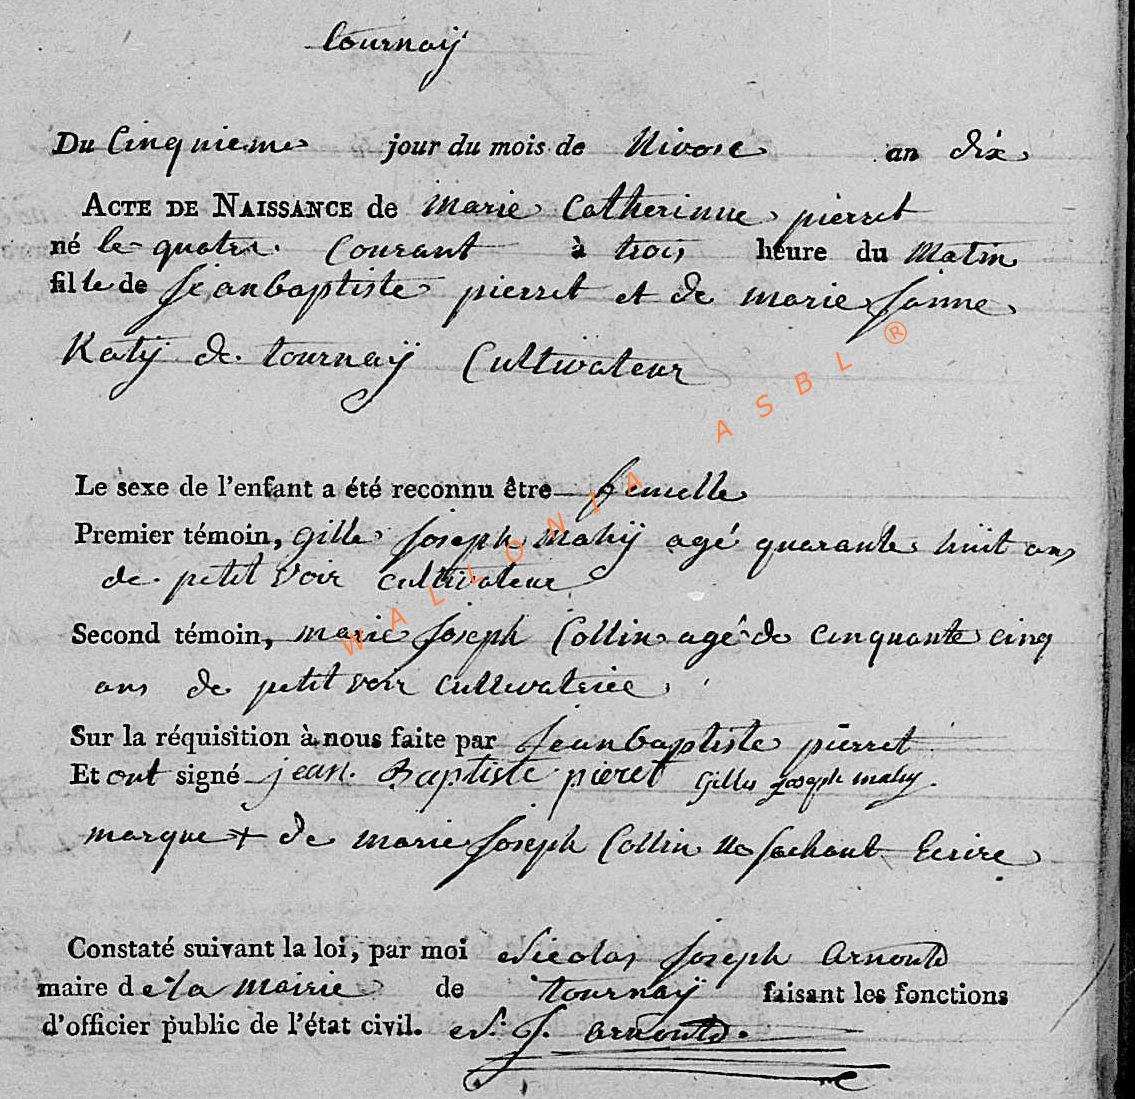 tournaÿ
Du Cinquieme jour du mois de Nivose an dix
ACTE DE NAISSANCE de marie Catherinne pierret
né le quatre courant à trois heure du Matin
fille de jeanbaptiste pierret et de marie janne
Katÿ de tournaÿ Cultivateur
Le sexe de l'enfant a été reconnu être femelle
Premier témoin, gille joseph mahÿ agé quarante huit ans
de petit voir cultivateur
Second témoin, marie joseph Collin agé de cinquante cinq
ans de petit voir cultivatrice
Sur la réquisition à nous faite par jeanbaptiste pierret
Et ont signé jean Baptiste pieret Gilles joseph mahy
marque + de marie joseph Collin ne sachant Ecrire
Constaté suivant la loi, par moi Nicolas joseph Arnould
maire de la mairie de tournaÿ faisant les fonctions
d'officier public de l'état civil. N. J. Arnould.
WALLONIA ASBL ®